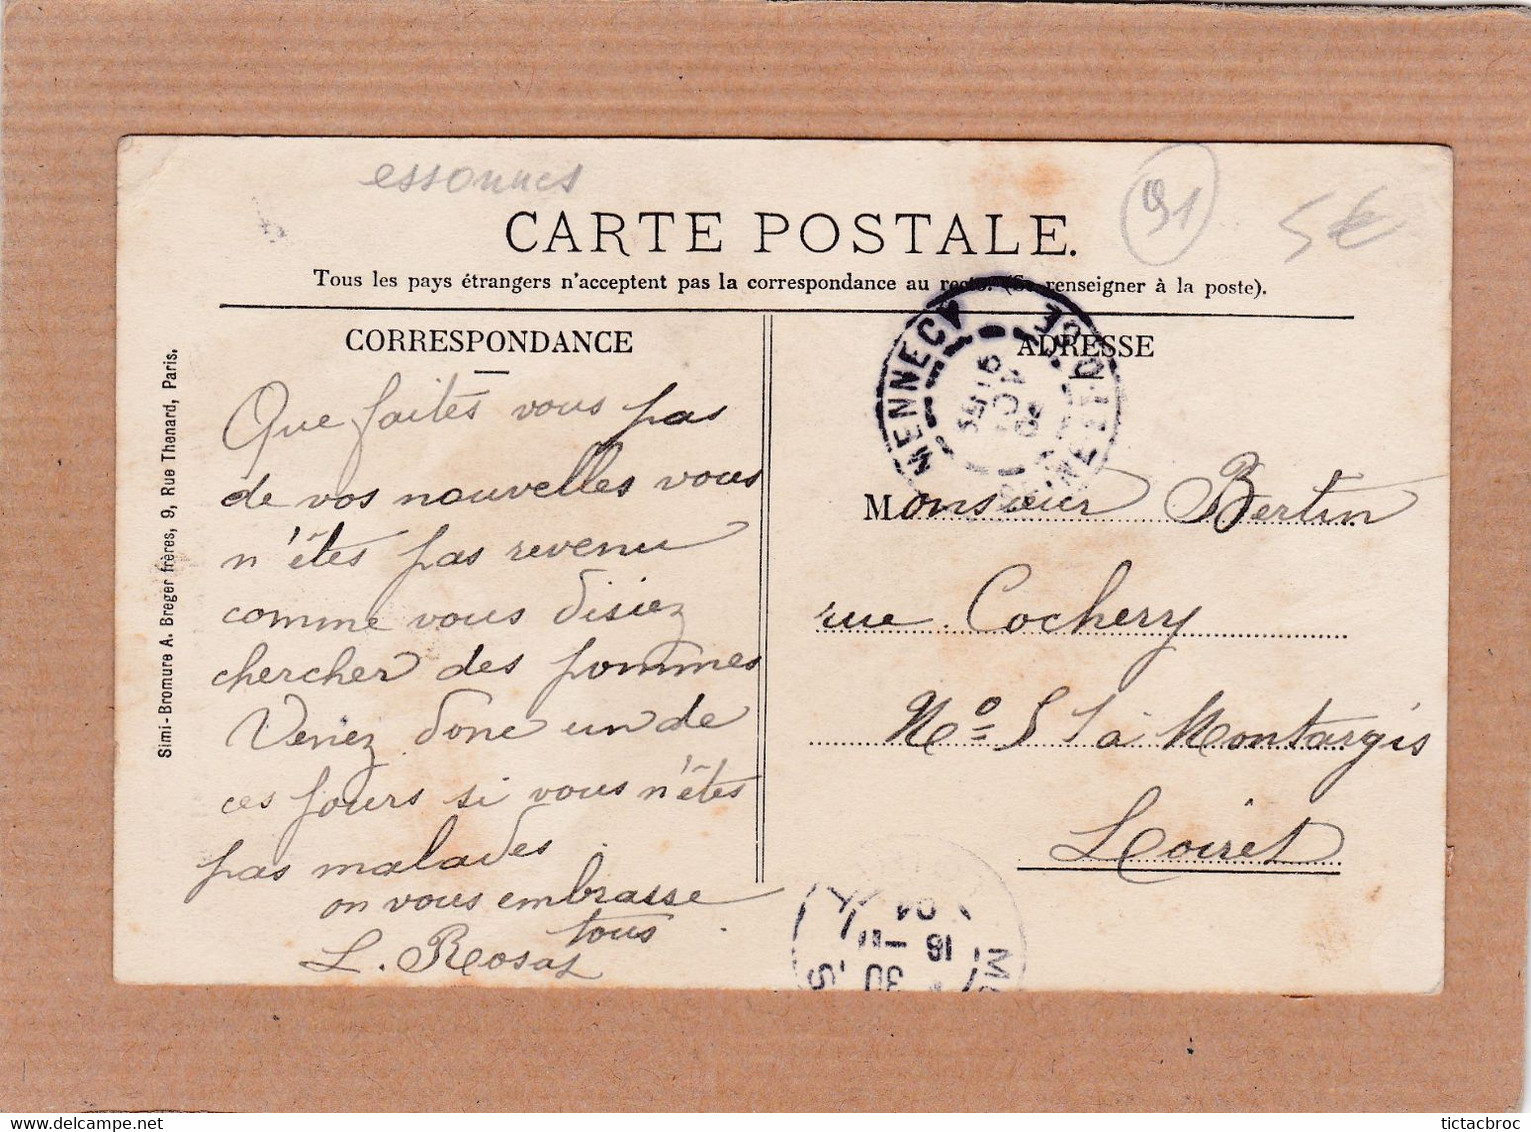 essonnes
91
5€
CARTE POSTALE.
Tous les pays étrangers n'acceptent pas la correspondance au recto. (Se renseigner à la poste).
CORRESPONDANCE
ADRESSE
Simi-Bromure A. Breger frères, 9, Rue Thenard, Paris.
Que faites vous pas
de vos nouvelles vous
n'êtes pas revenu
comme vous disiez
chercher des pommes
Venez donc un de
ces jours si vous n'êtes
pas malades.
on vous embrasse
tous
L. Rosas
MENNECY
SEINE-ET-OISE
Monsieur Bertin
rue Cochery
No 51 à Montargis
Loiret
16
30
04
tictacbroc